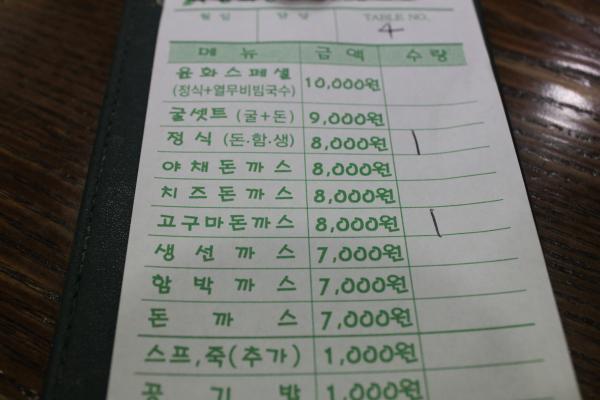 TABLE NO.
4
메뉴 금액 수량
윤화스페셜 10,000원
(정식+열무비빔국수)
굴셋트 (굴+돈) 9,000원
정식 (돈·함·생) 8,000원 |
야채돈까스 8,000원
치즈돈까스 8,000원
고구마돈까스 8,000원 |
생선까스 7,000원
함박까스 7,000원
돈까스 7,000원
스프,죽(추가) 1,000원
공기밥 1,000원